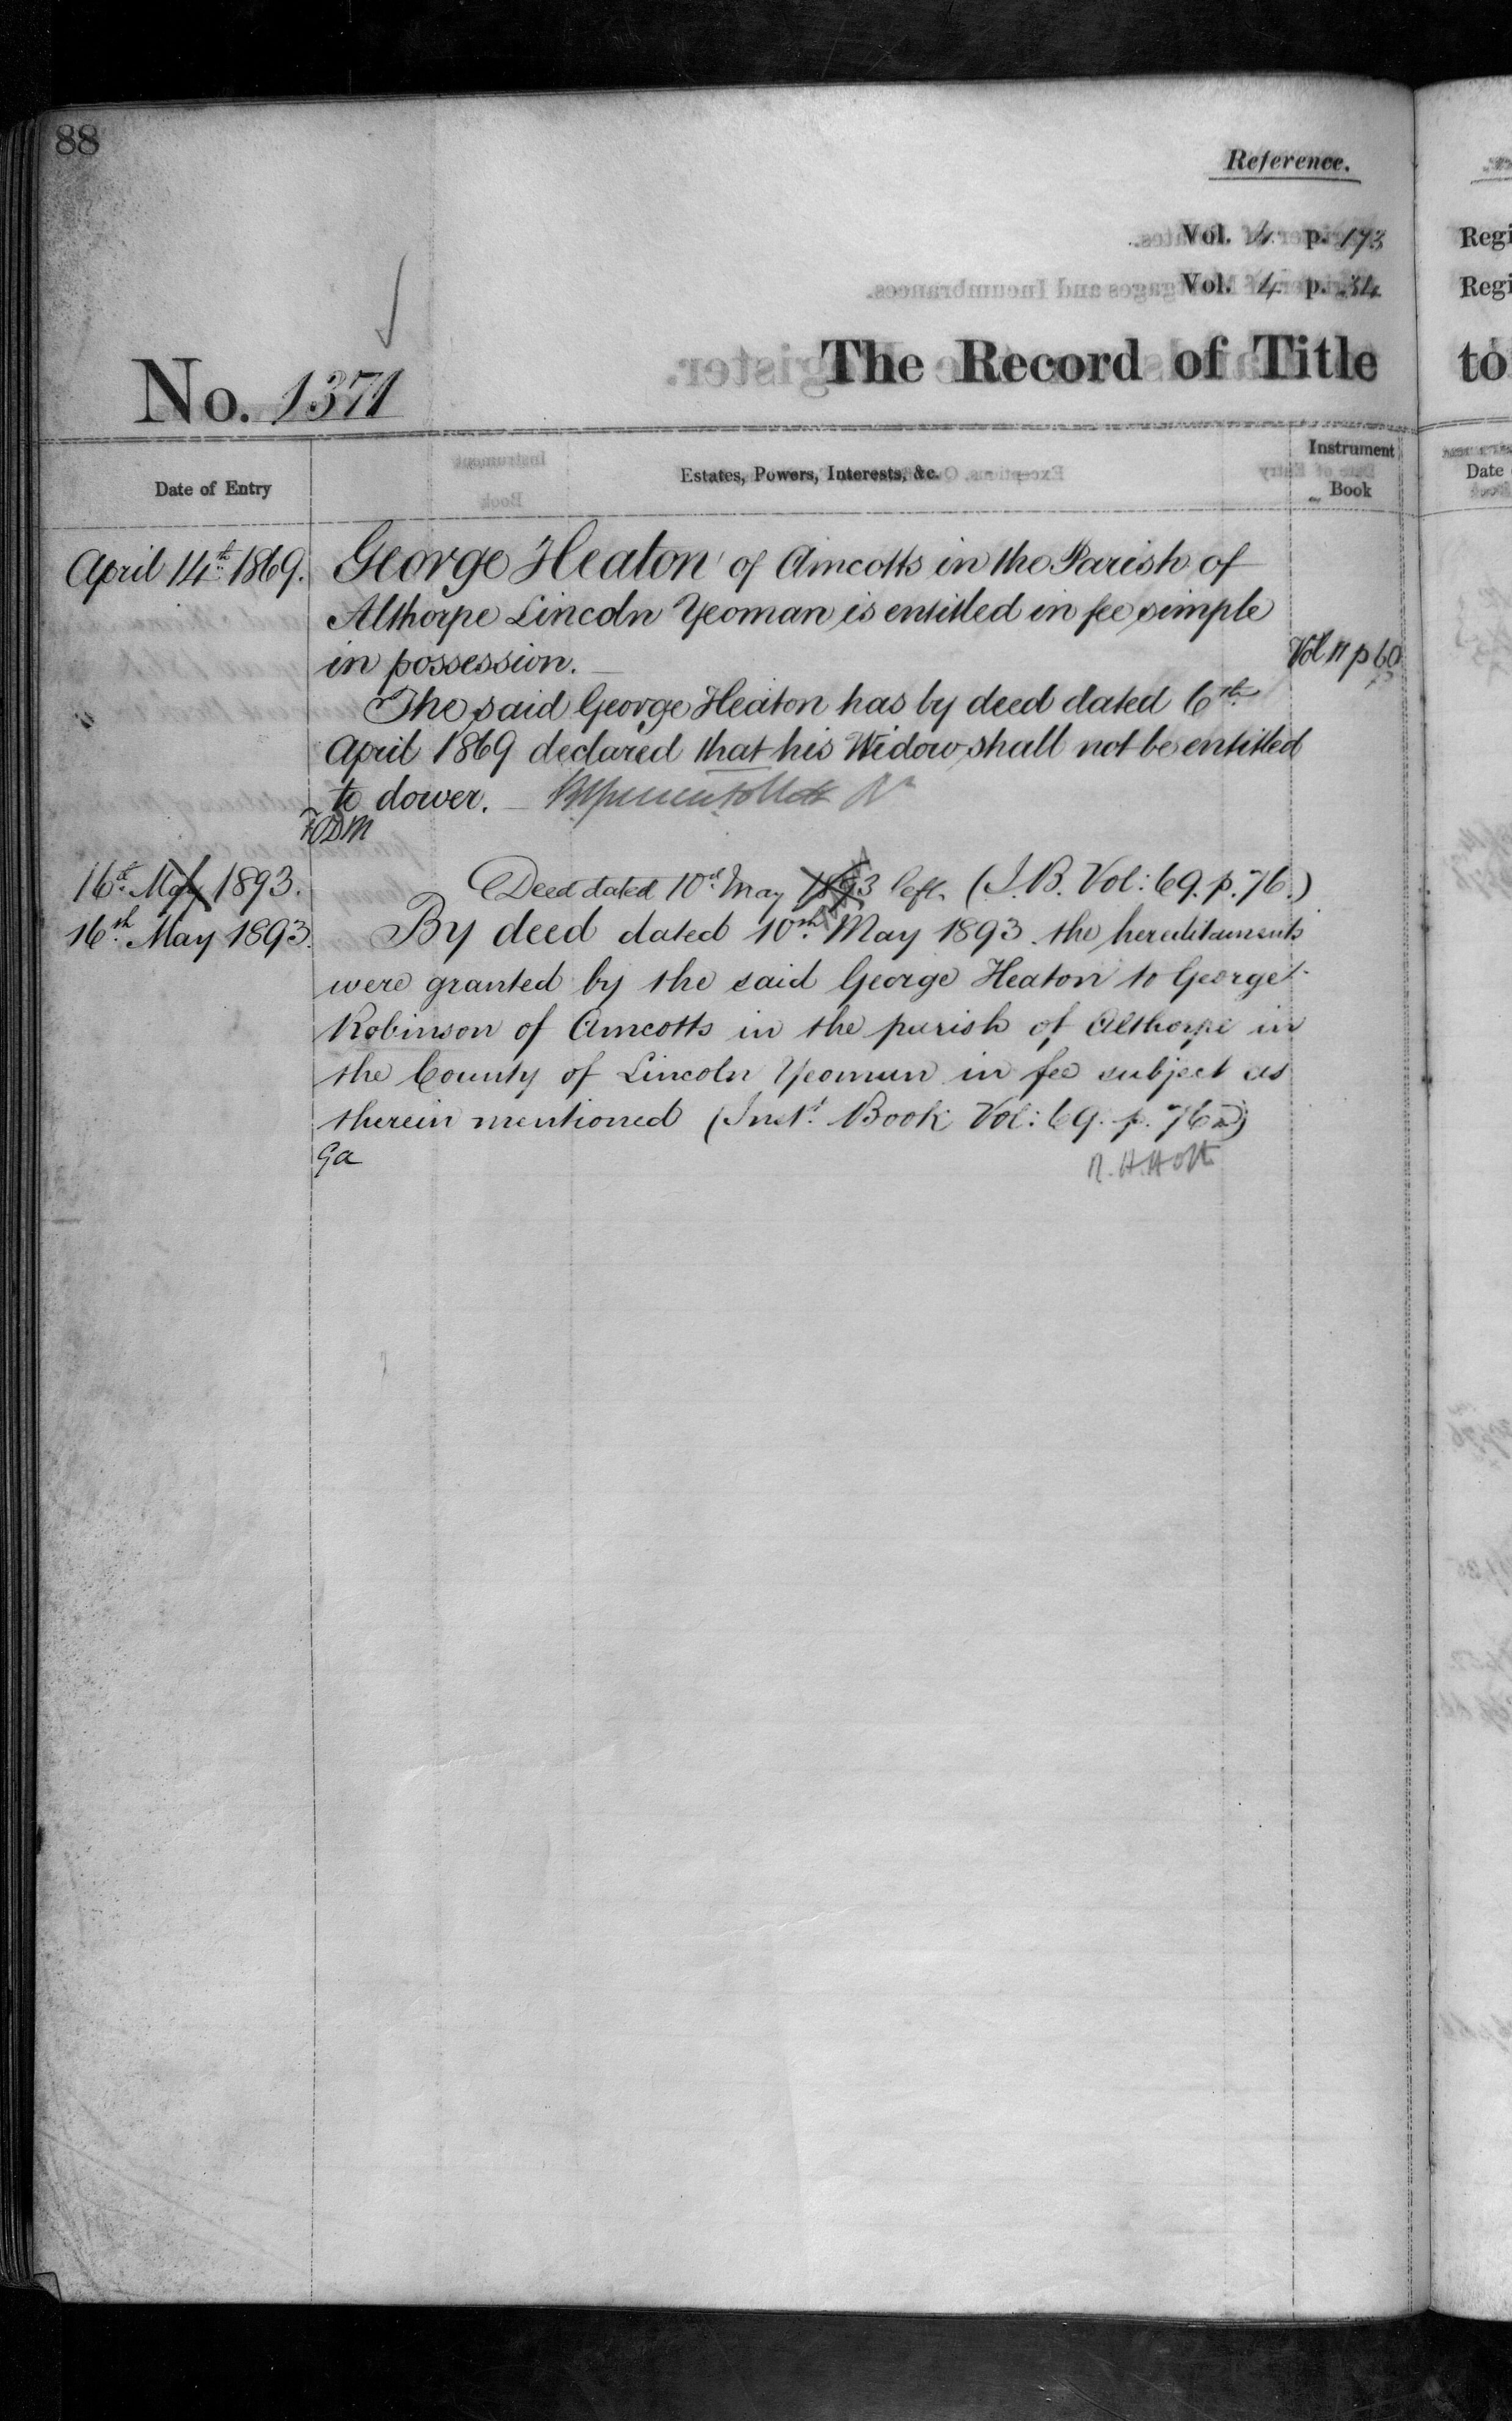 88
Reference.
Vol. 4 p. 173
Vol. 4 p. 34
No. 1371
The Record of Title
Date of Entry
Estates, Powers, Interests, &c.
Instrument
Book
April 14th 1869.
George Heaton of Amcotts in the Parish of
Althorpe Lincoln Yeoman is entitled in fee simple
in possession.
Vol 11 p 60
The said George Heaton has by deed dated 6th
April 1869 declared that his Widow shall not be entitled
to dower.
16th May 1893.
Deed dated 10th May 1893 left (I.B. Vol: 69. p. 76.)
16th May 1893.
By deed dated 10th May 1893 the hereditaments
were granted by the said George Heaton to George
Robinson of Amcotts in the parish of Althorpe in
the County of Lincoln Yeoman in fee subject as
therein mentioned (Inst. Book Vol: 69. p. 76)
R. H. Holt
Regi
Regi
to
Date